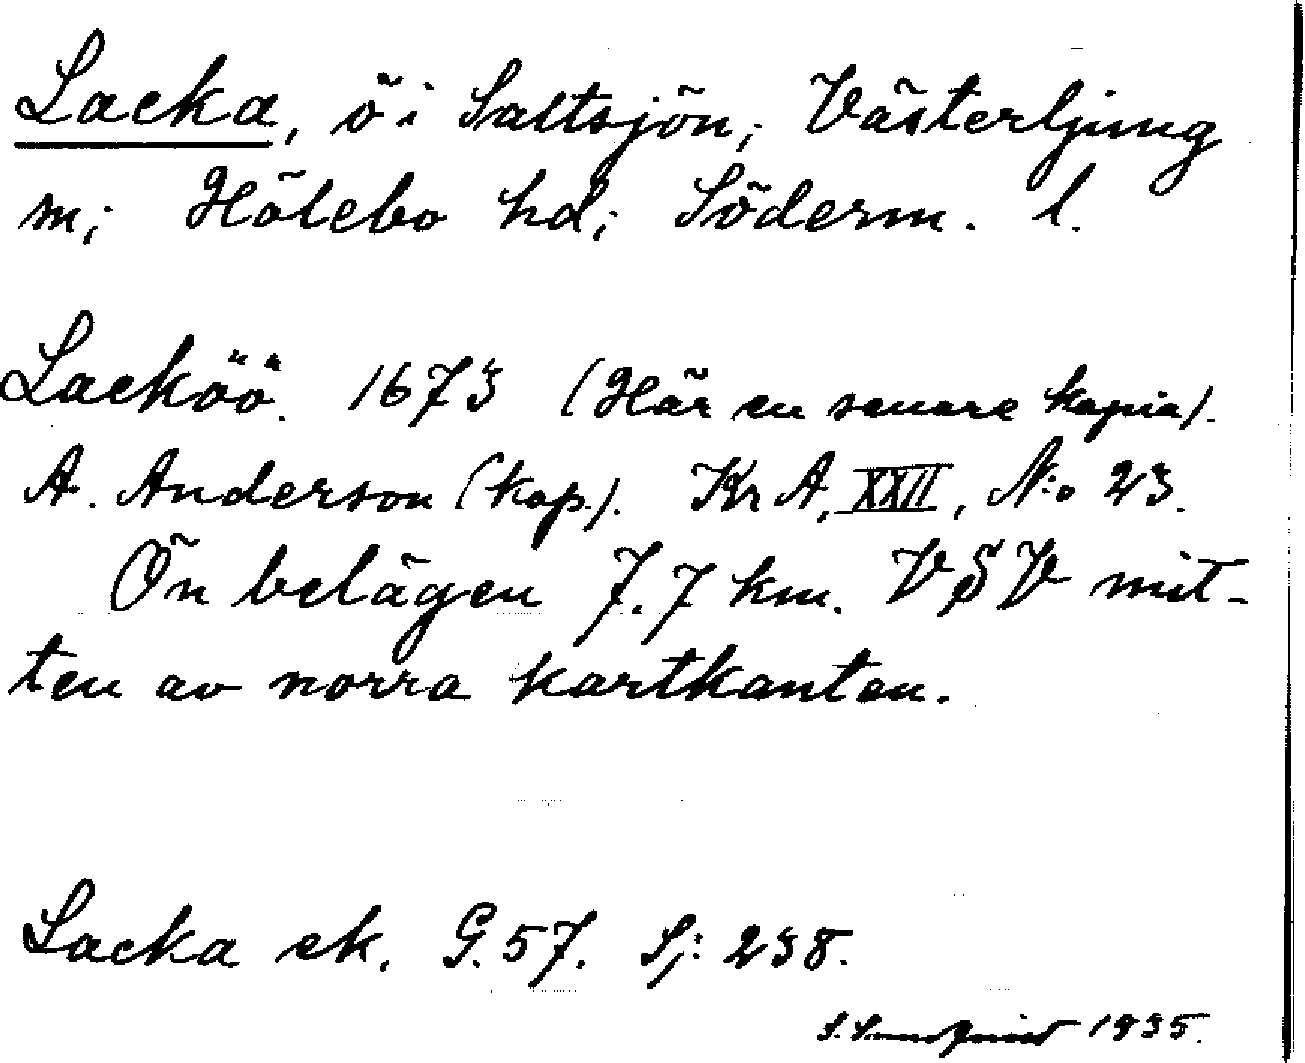 Lacka, ö i Saltsjön; Västerljung
sn; Hölebo hd; Söderm. l.
Lacköö. 1673 (Här en senare kopia).
A. Anderson (kop.). Kr A, XXII, N:o 23.
Ön belägen 7.7 km. VSV mit-
ten av norra kartkanten.
Lacka ek. G. 57. Sj: 238.
S. Sundquist 1935.